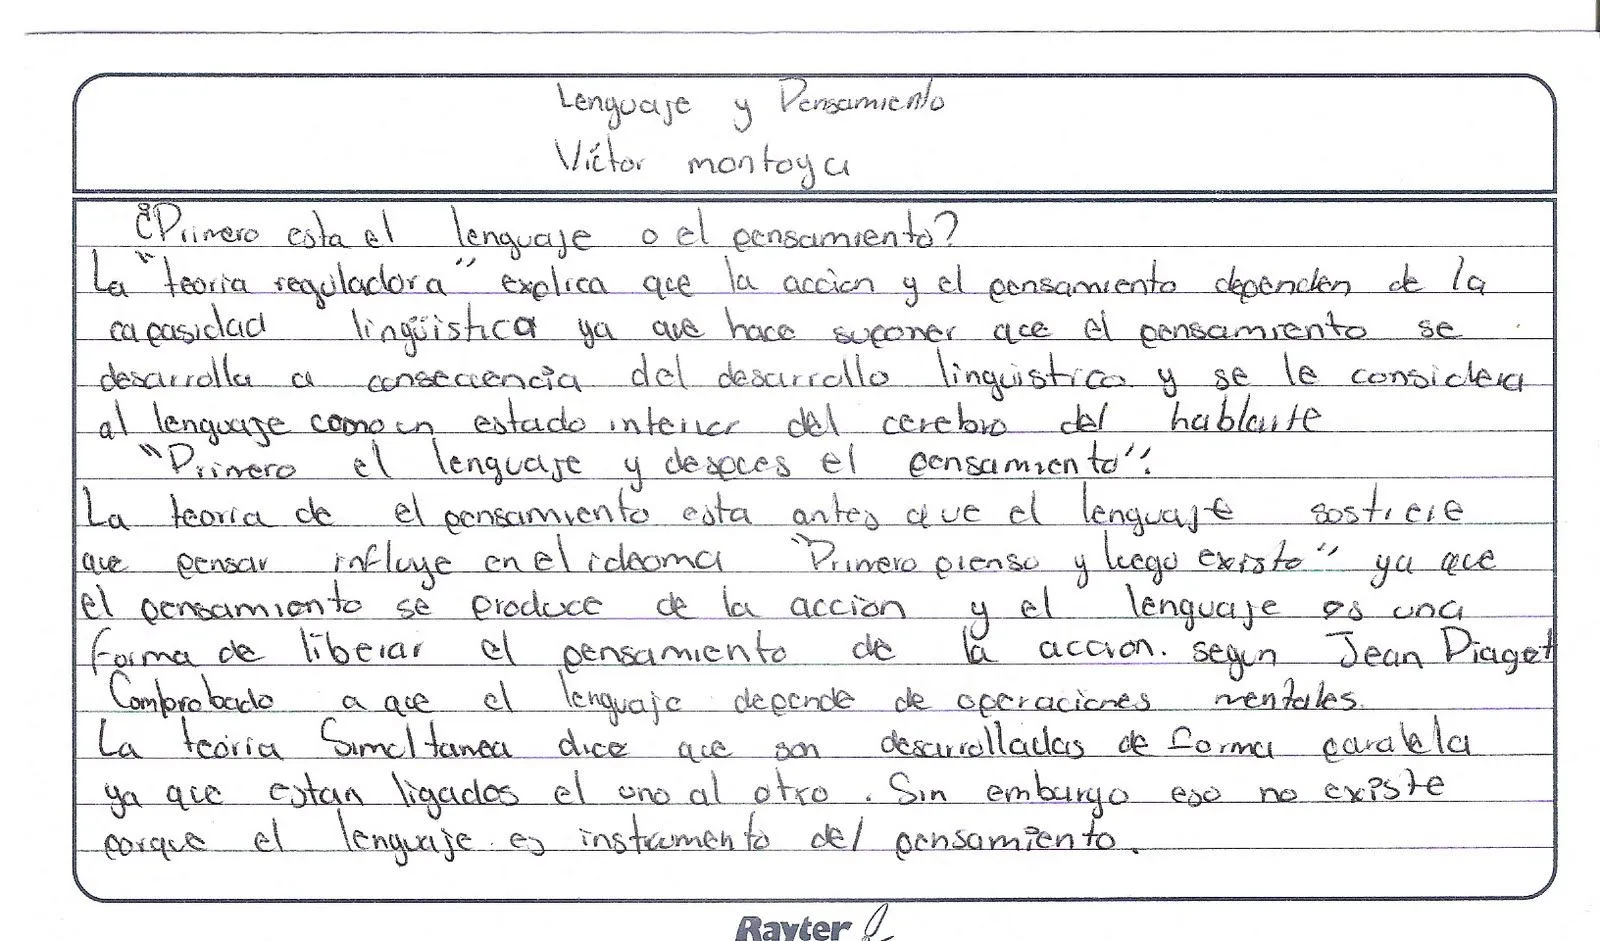 Lenguaje y Pensamiento
Víctor montoya
¿Primero esta el lenguaje o el pensamiento?
La "teoria reguladora" explica que la accion y el pensamiento dependen de la
capasidad lingüistica ya que hace suponer que el pensamiento se
desarrolla a consecuencia del desarrollo linguistico y se le considera
al lenguaje como un estado interior del cerebro del hablante
"Primero el lenguaje y despues el pensamiento".
La teoria de el pensamiento esta antes que el lenguaje sostiene
que pensar influye en el idioma "Primero pienso y luego existo" ya que
el pensamiento se produce de la accion y el lenguaje es una
forma de liberar el pensamiento de la accion. segun Jean Piaget
Comprobado a que el lenguaje depende de operaciones mentales.
La teoria Simultanea dice que son desarrolladas de forma paralela
ya que estan ligados el uno al otro. Sin embargo eso no existe
porque el lenguaje es instrumento del pensamiento.
Rayter